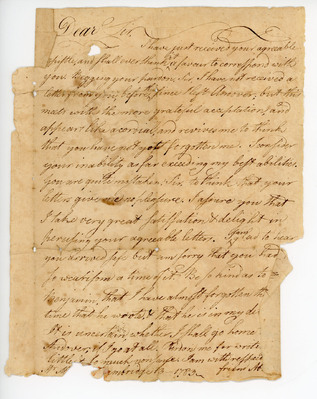 Dear Sir,
I have just received your agreeable
epistle, and shall ever think it a favour to correspond with
you begging your pardon, Sir, I have not received a
letter from you, before, since I left Andover, but this
meets with the more grateful acceptation, and
appears like a cordial, and revives me to think
that you have not yet forgotten me. I consider
your inability as far exceeding my best abilities.
You are quite mistaken Sir, to think that your
letters give me no pleasure. I assure you that
I take very great satisfaction & delight in
perusing your agreeable letters. I am glad to hear
you arrived safe but am sorry that you had
so wearisom a time of it. Be so kind as to
Benjamin, that I have almost forgotten the
time that he wrote, & that he is in my
It is uncertain whether I shall go home
Andover, if I go at all. Pardon me for
little I am with respect